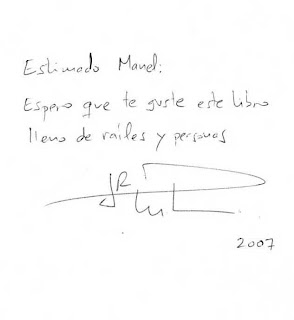 Estimado Manel:
Espero que te guste este libro
lleno de raíles y personas
2007